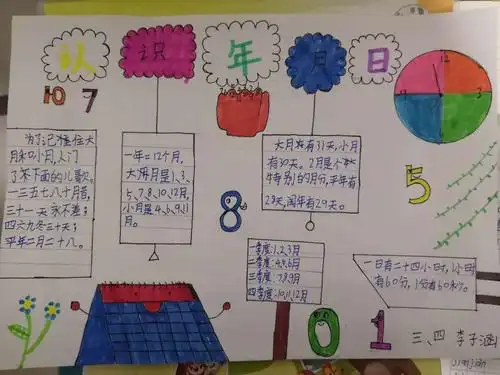 认识年月日
10 7
12
为了记住大
月和小月,人们
了下面的儿歌。
一三五七八十月腊,
三十一天永不差;
四六九冬三十天;
平年二月二十八。
一年=12个月,
大月是1、3、
5、7、8、10、12月,
小月是4、6、9、11
月。
大月有31天,小月
有30天。2月是个
特别的月份,平年有
28天,闰年有29天。
5
8
一季度:1、2、3月
二季度:4、5、6月
三季度:7、8、9月
四季度:10、11、12月
一日有二十四小时,1小时
有60分,1分有60秒。
0 1
三、四 李子涵